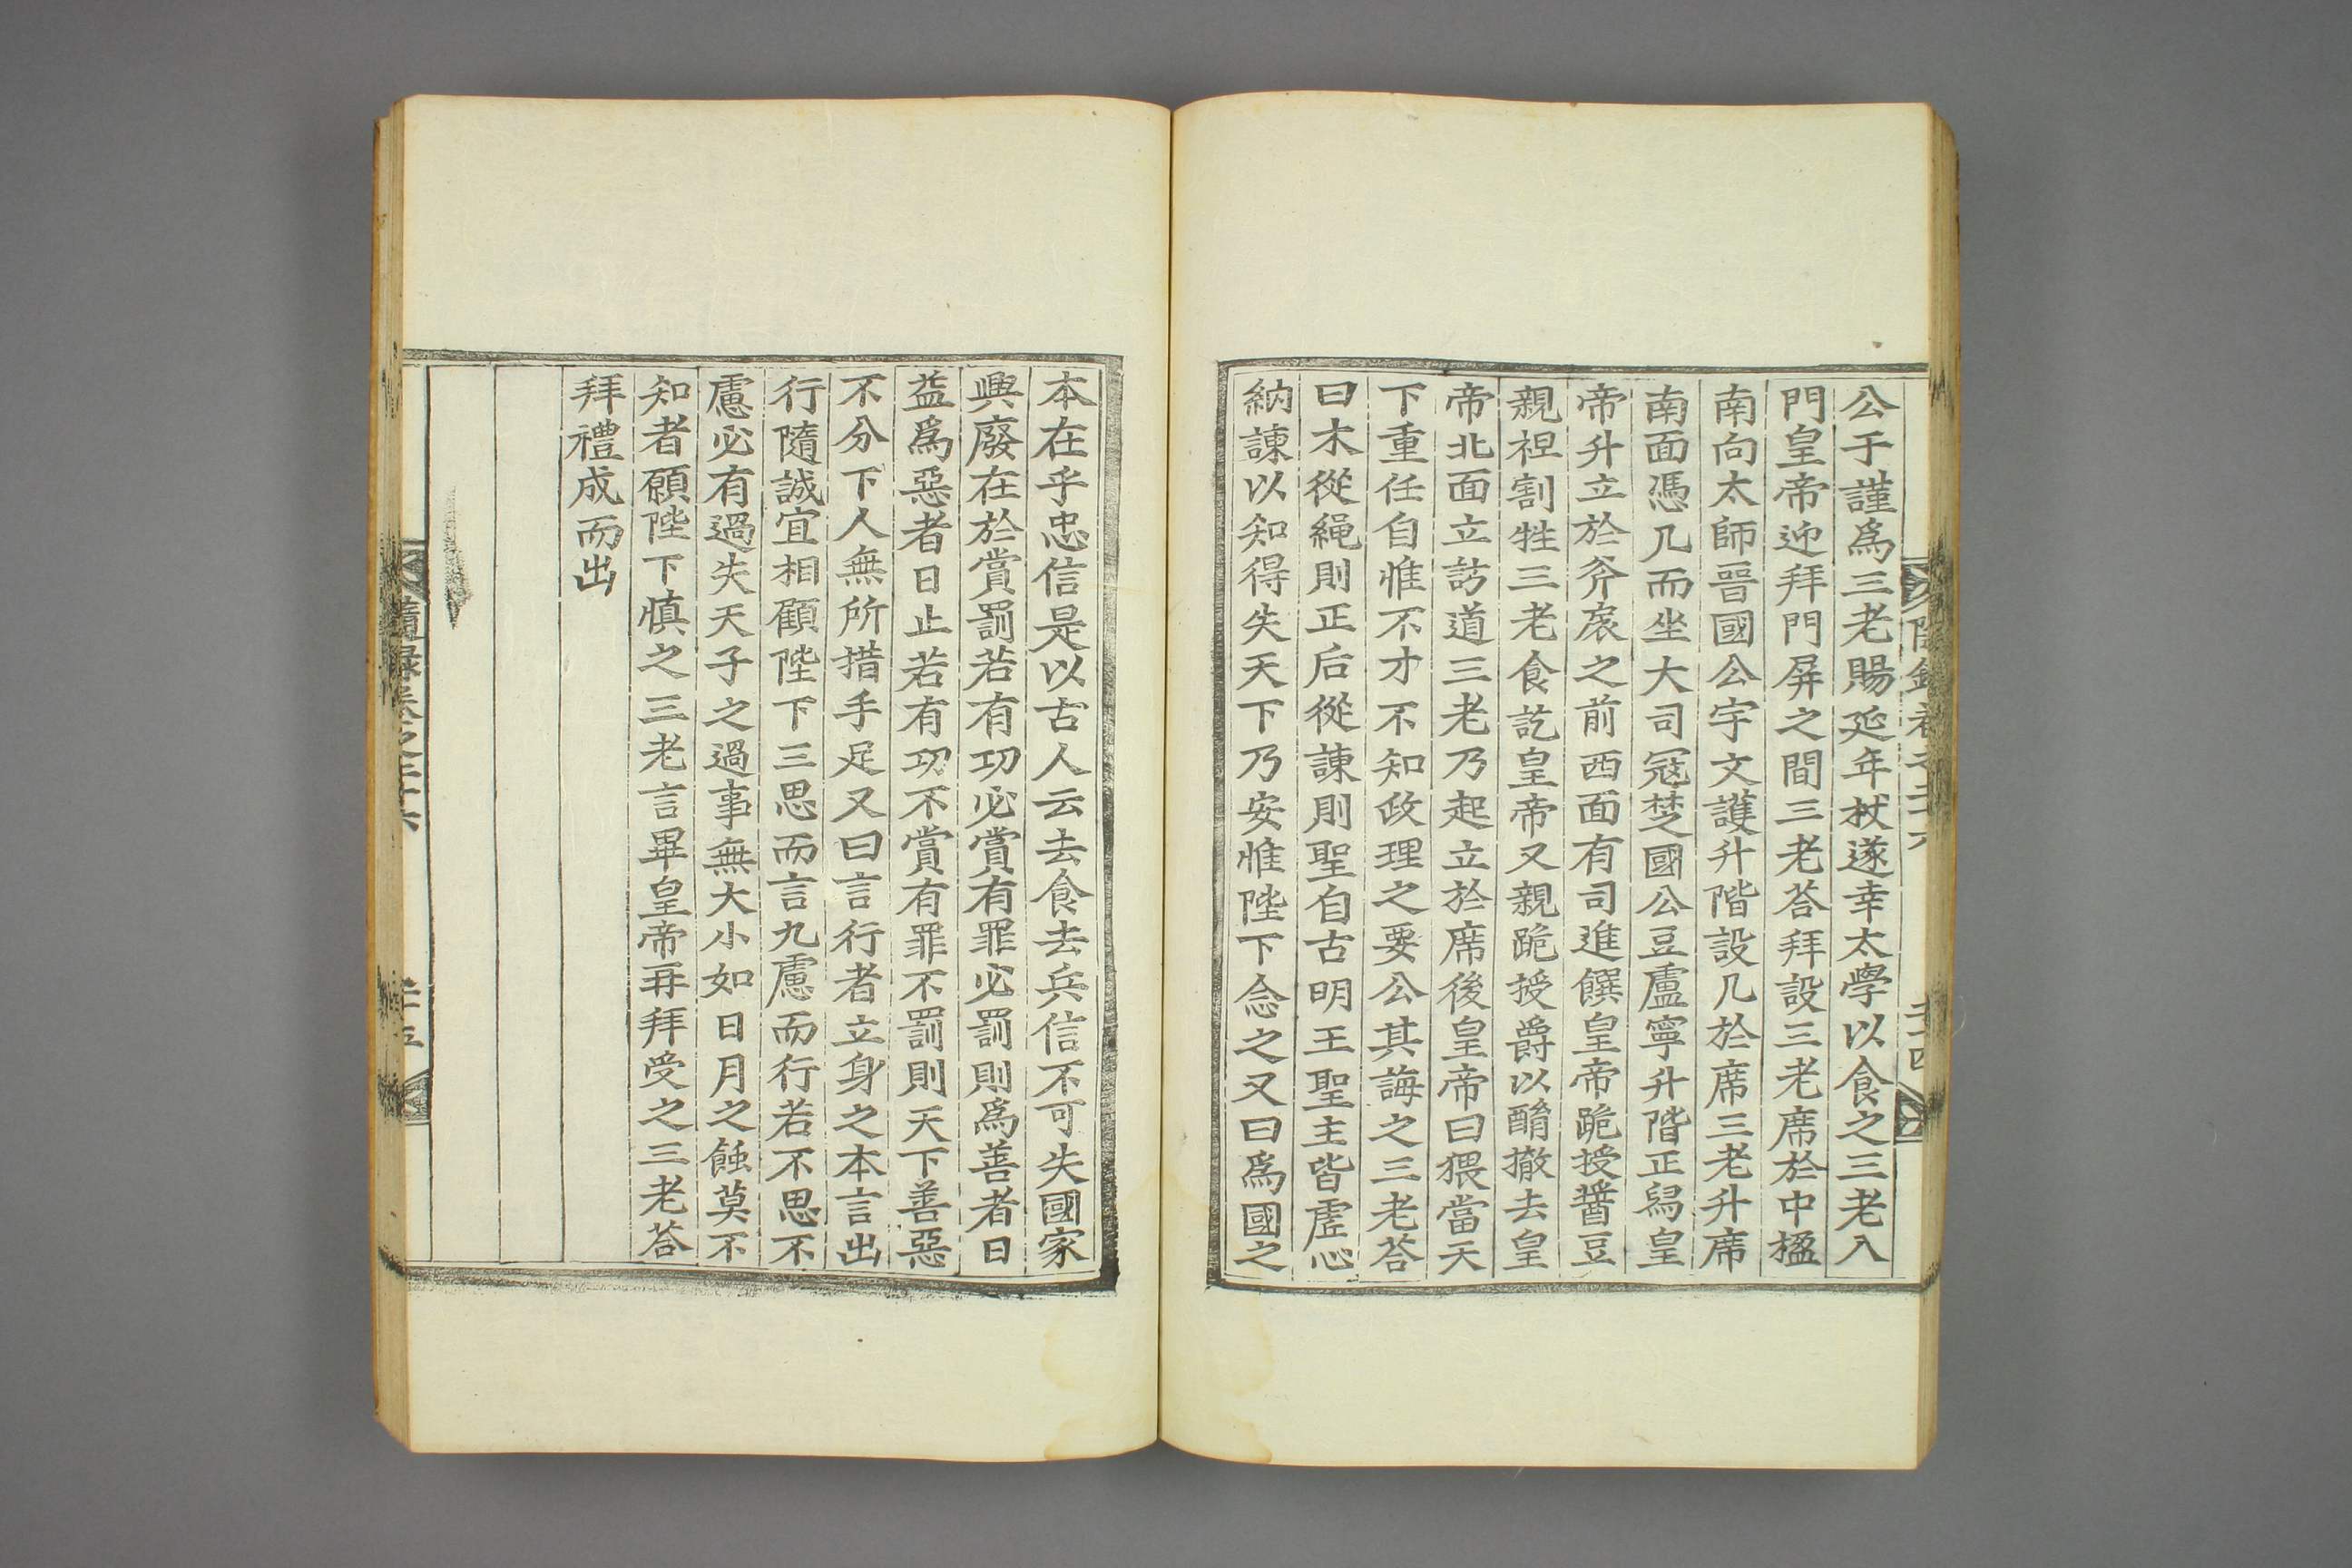 公于謹爲三老賜延年杖遂幸太學以食之三老入
門皇帝迎拜門屏之間三老荅拜設三老席於中楹
南向太師晉國公宇文護升階設几於席三老升席
南面憑几而坐大司冦楚國公豆盧寧升階正舄皇
帝升立於斧扆之前西面有司進饌皇帝跪授醬豆
親袒割牲三老食訖皇帝又親跪授爵以酳撤去皇
帝北面立訪道三老乃起立於席後皇帝曰猥當天
下重任自惟不才不知政理之要公其誨之三老荅
曰木從繩則正后從諫則聖自古明王聖主皆虛心
納諫以知得失天下乃安惟陛下念之又曰爲國之
本在乎忠信是以古人云去食去兵信不可失國家
興廢在於賞罰若有功必賞有罪必罰則爲善者日
益爲惡者日止若有功不賞有罪不罰則天下善惡
不分下人無所措手足又曰言行者立身之本言出
行隨誠宜相顧陛下三思而言九慮而行若不思不
慮必有過失天子之過事無大小如日月之蝕莫不
知者願陛下慎之三老言畢皇帝再拜受之三老荅
拜禮成而出
隨録卷之二十六 二十五